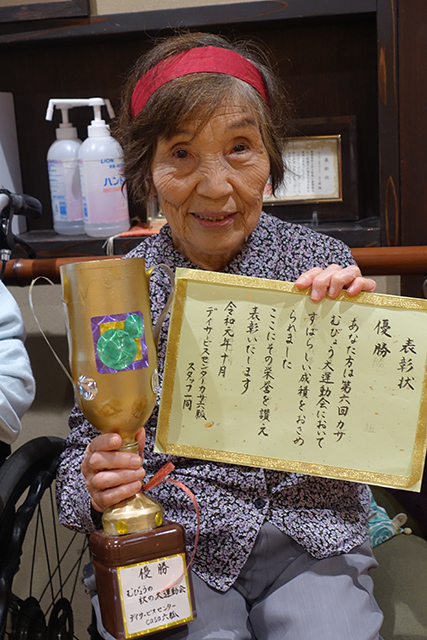 表彰状
優勝
あなた方は第六回カサ
むびょう大運動会において
すばらしい成績をおさめ
られました
ここにその栄誉を讃え
表彰いたします
令和元年十月
デイサービスセンターカサ六瓢
スタッフ一同
優勝
むびょうの
秋の大運動会
デイサービスセンター
LION
ハンド
表彰状